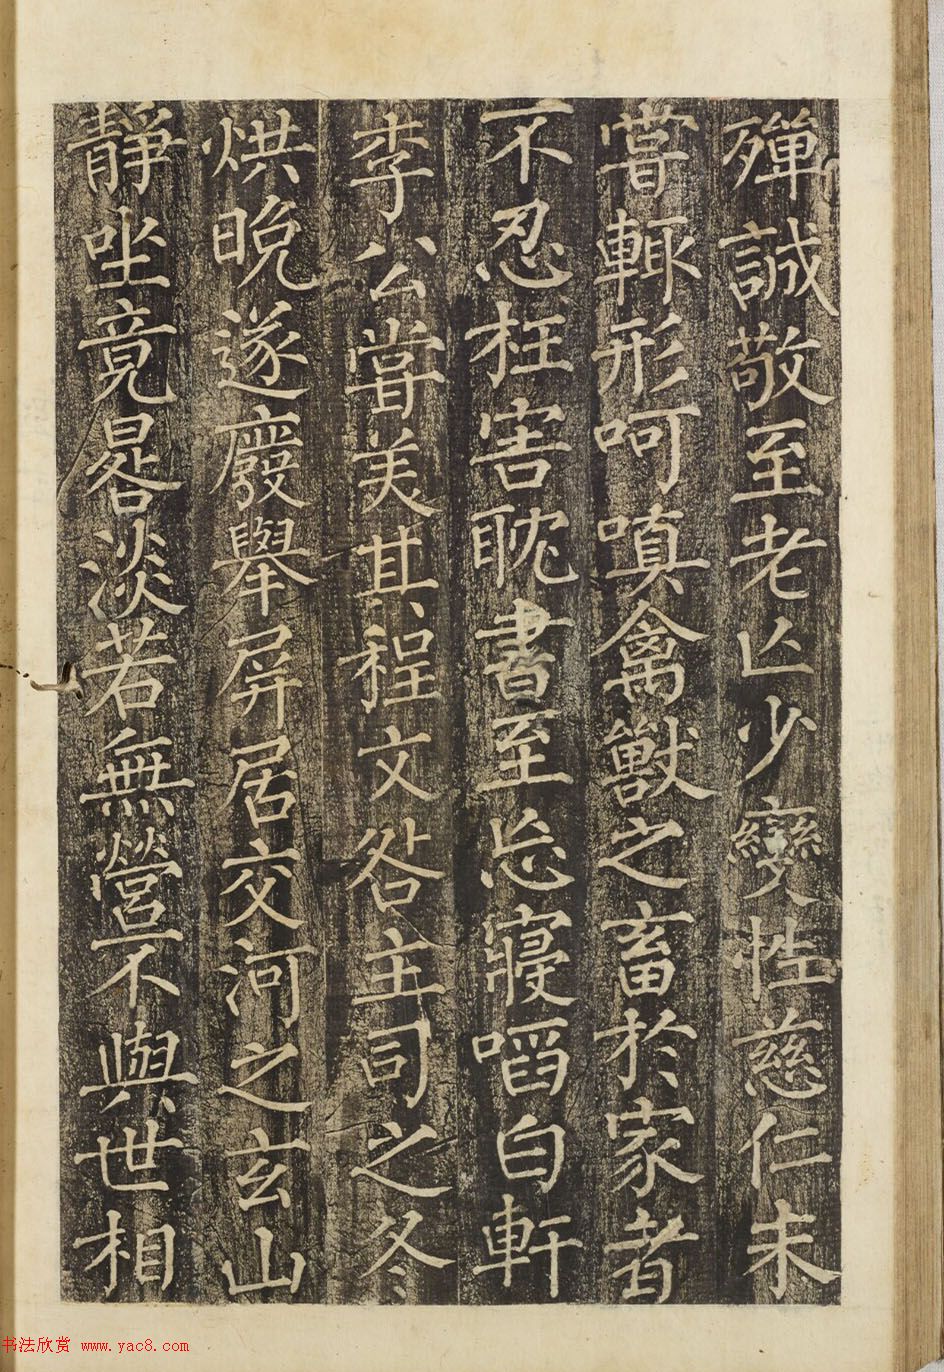 殫誠敬至老亾少變性慈仁未
嘗輙形呵嗔禽獸之畜於家者
不忍枉害耽書至忘寢啗白軒
李公嘗美其程文咎主司之冬
烘晚遂廢舉屏居交河之玄山
靜坐竟晷淡若無營不與世相
书法欣赏 www.yac8.com